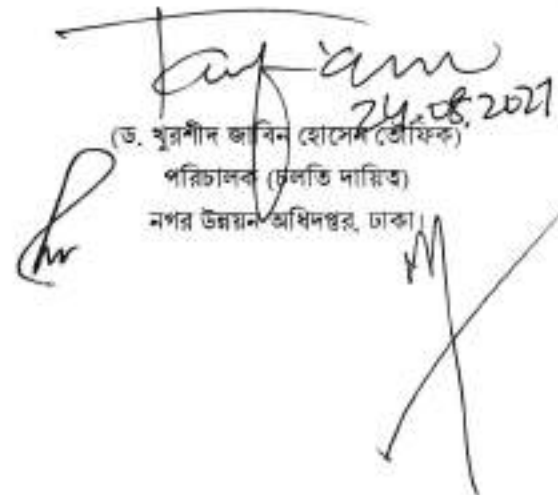 24.08.2021
(ড. খুরশীদ জাবিন হোসেন তৌফিক)
পরিচালক (চলতি দায়িত্ব)
নগর উন্নয়ন অধিদপ্তর, ঢাকা।